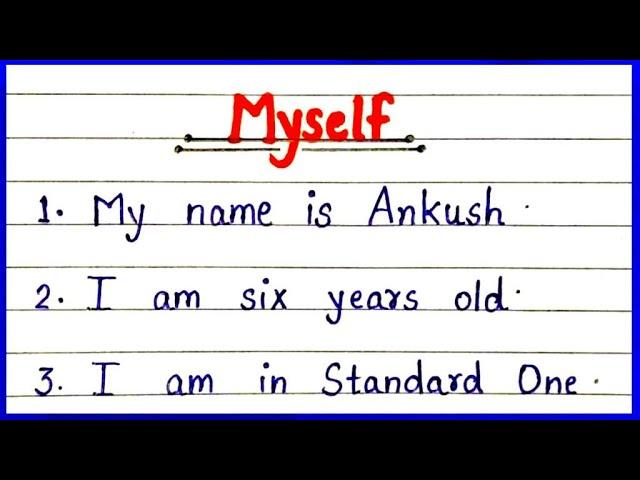 Myself
1. My name is Ankush.
2. I am six years old.
3. I am in Standard One.